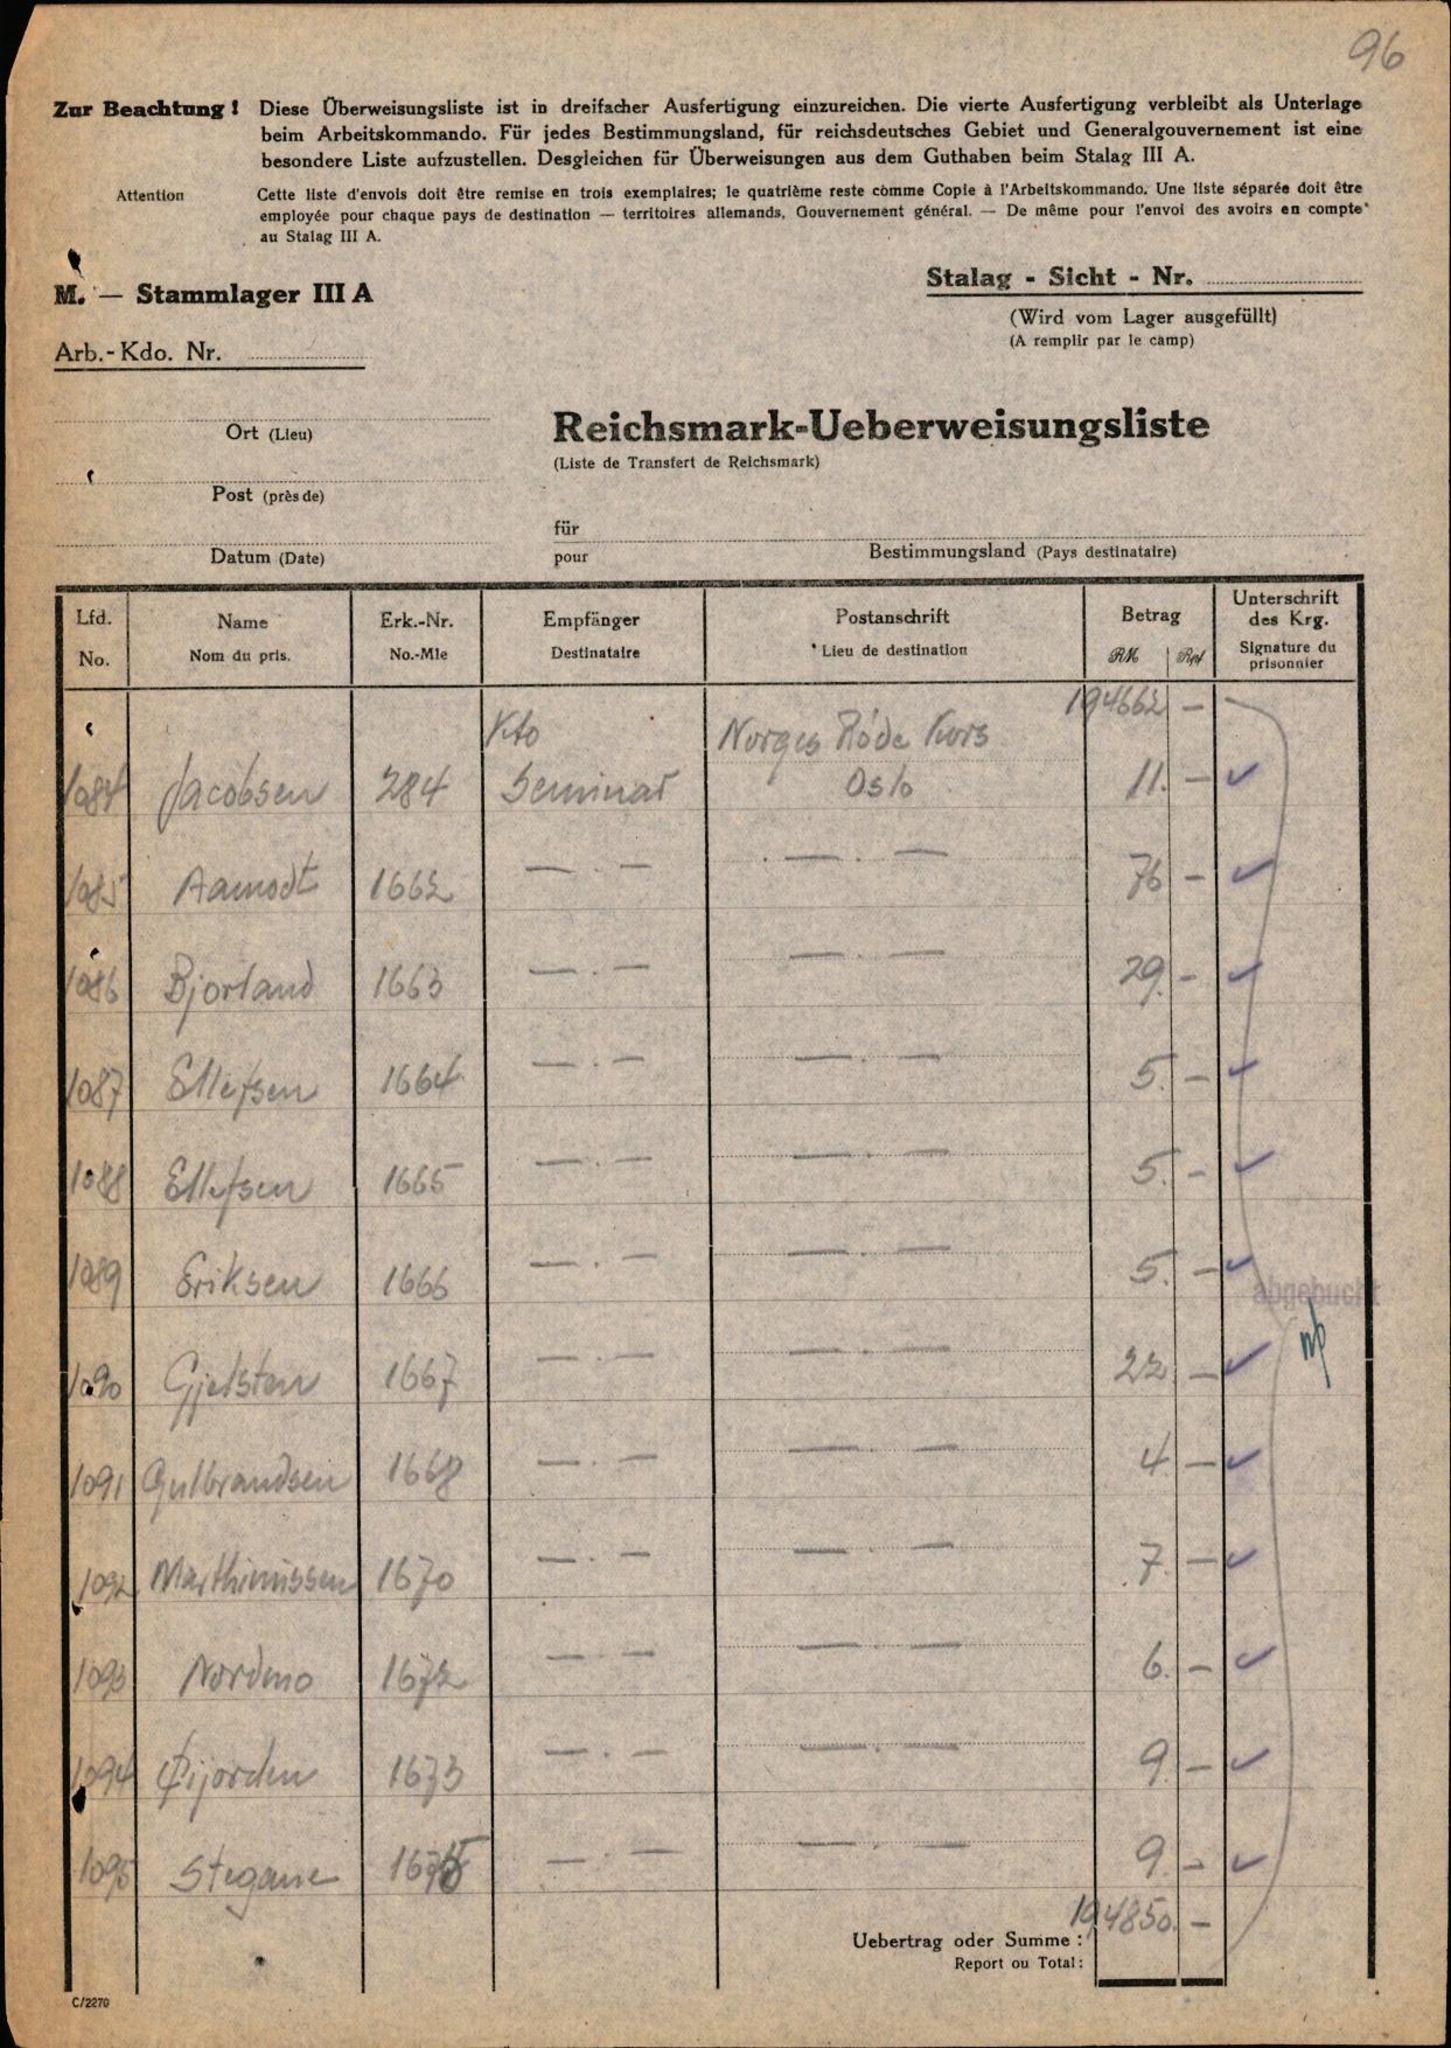 96
Zur Beachtung! Diese Überweisungsliste ist in dreifacher Ausfertigung einzureichen. Die vierte Ausfertigung verbleibt als Unterlage
beim Arbeitskommando. Für jedes Bestimmungsland, für reichsdeutsches Gebiet und Generalgouvernement ist eine
besondere Liste aufzustellen. Desgleichen für Überweisungen aus dem Guthaben beim Stalag III A.
Attention Cette liste d'envois doit être remise en trois exemplaires; le quatrième reste comme Copie à l'Arbeitskommando. Une liste séparée doit être
employée pour chaque pays de destination — territoires allemands, Gouvernement général. — De même pour l'envoi des avoirs en compte
au Stalag III A.
M. — Stammlager III A
Stalag - Sicht - Nr.
(Wird vom Lager ausgefüllt)
(A remplir par le camp)
Arb.-Kdo. Nr.
Ort (Lieu)
Post (près de)
Datum (Date)
Reichsmark-Ueberweisungsliste
(Liste de Transfert de Reichsmark)
für
pour
Bestimmungsland (Pays destinataire)
Lfd. Name Erk.-Nr. Empfänger Postanschrift Betrag Unterschrift des Krg.
No. Nom du pris. No.-Mle Destinataire Lieu de destination RM Rpf Signature du prisonnier
194662 —
Kto Norges Røde Kors
1084 Jacobsen 284 Seminar Oslo 11. —
1085 Aamodt 1662 — . — — . — 76 —
1086 Bjorland 1663 — . — — . — 29. —
1087 Ellefsen 1664 — . — — . — 5. —
1088 Ellefsen 1665 — . — — . — 5. —
1089 Eriksen 1666 — . — — . — 5. —
abgebucht
1090 Gjelsten 1667 — . — — . — 22 —
1091 Gulbrandsen 1668 — . — — . — 4 —
1092 Marthinissen 1670 — . — — . — 7. —
1093 Nordmo 1672 — . — — . — 6. —
1094 Øijorden 1673 — . — — . — 9. —
1095 Stegane — . — — . — 9. —
194850. —
Uebertrag oder Summe:
Report ou Total:
C/2270